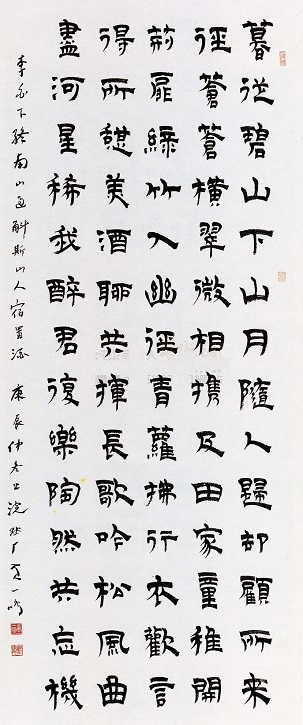 暮從碧山下山月隨人歸却顧所來
徑蒼蒼橫翠微相攜及田家童稚開
荊扉綠竹入幽徑青蘿拂行衣歡言
得所憩美酒聊共揮長歌吟松風曲
盡河星稀我醉君復樂陶然共忘機
李白下終南山過斛斯山人宿置酒 庚辰仲冬上浣